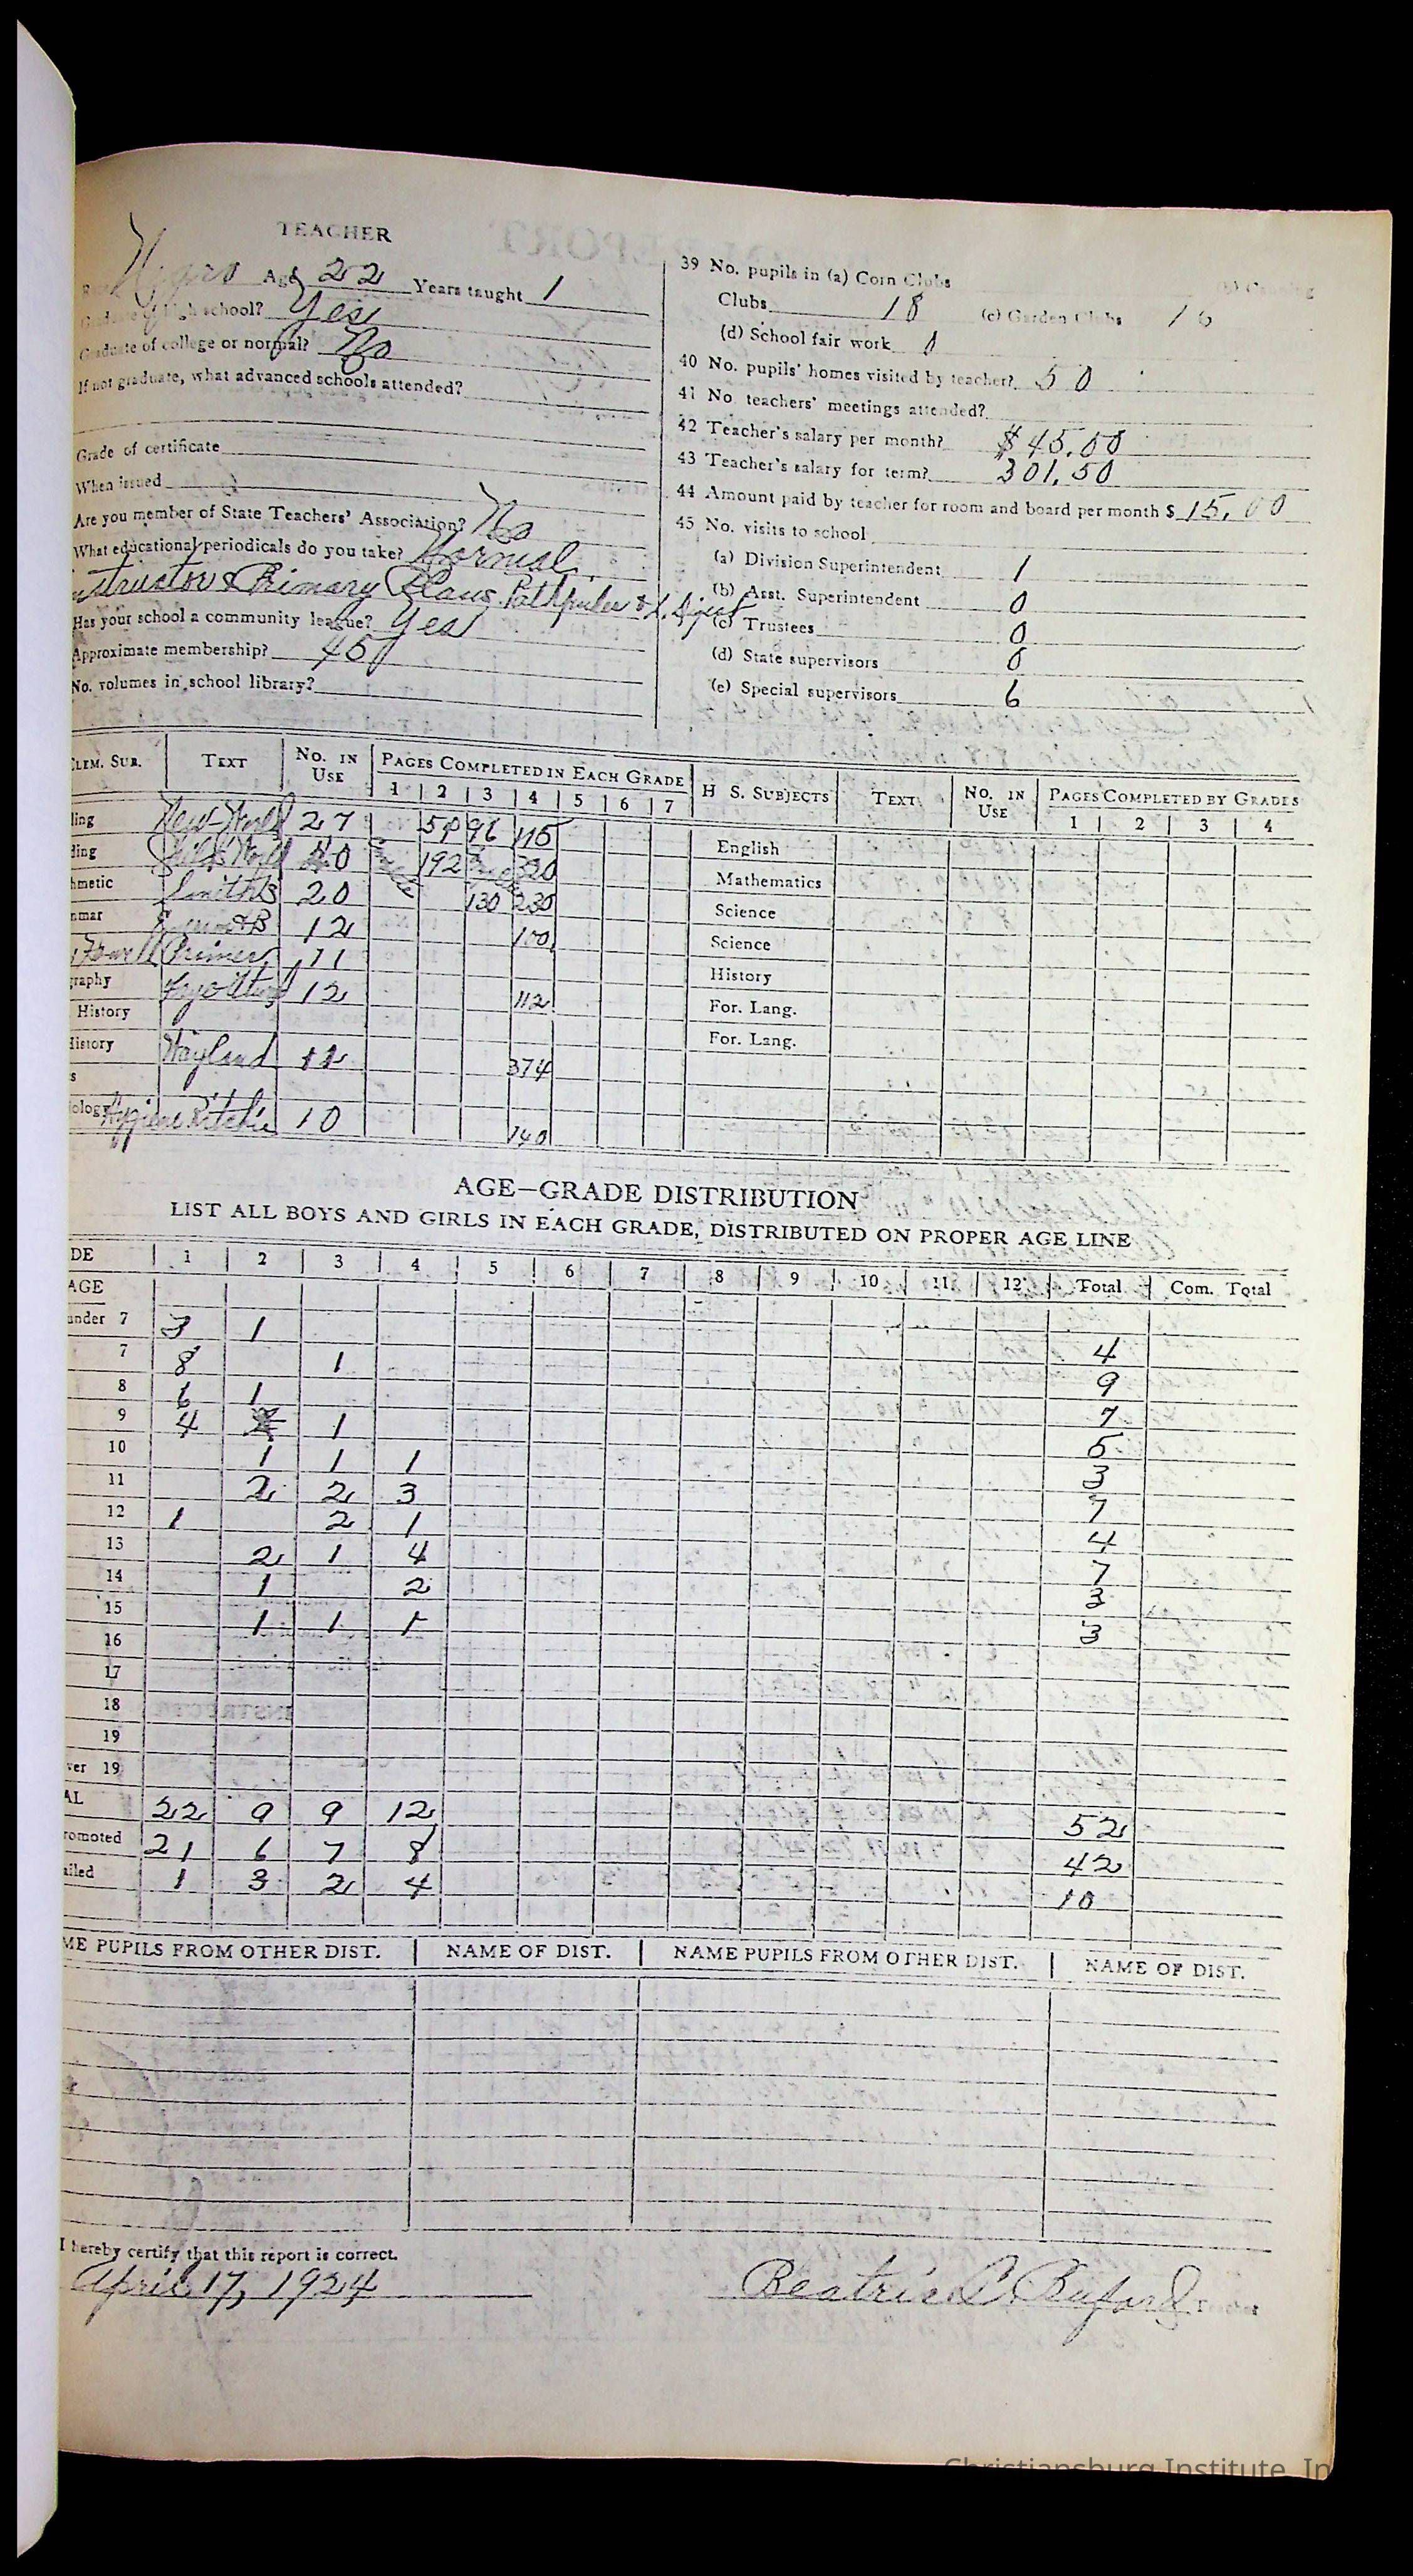 TEACHER
Negro Age 22 Years taught 1
Graduate of high school? Yes
Graduate of college or normal? No
If not graduate, what advanced schools attended?
Grade of certificate
When issued
Are you member of State Teachers' Association? No
What educational periodicals do you take? Normal
Instructor & Primary Plans, Pathfinder & L. Digest
Has your school a community league? Yes
Approximate membership? 45
No. volumes in school library?
39 No. pupils in (a) Corn Clubs (b) Canning
Clubs 18 (c) Garden Clubs 16
(d) School fair work
40 No. pupils' homes visited by teacher? 50
41 No. teachers' meetings attended?
42 Teacher's salary per month? $45.00
43 Teacher's salary for term? 301.50
44 Amount paid by teacher for room and board per month $ 15.00
45 No. visits to school
(a) Division Superintendent 1
(b) Asst. Superintendent 0
(c) Trustees 0
(d) State supervisors 0
(e) Special supervisors 6
ELEM. SUB. TEXT NO. IN USE PAGES COMPLETED IN EACH GRADE H. S. SUBJECTS TEXT NO. IN USE PAGES COMPLETED BY GRADES
1 2 3 4 5 6 7 1 2 3 4
ling New-World 27 58 96 115 English
ding Child's World 40 192 320 Mathematics
hmetic Smith's 20 130 230 Science
nmar 12 100 Science
Primer 11 History
graphy Frye 12 112 For. Lang.
History For. Lang.
History Wayland 12 374
s
iology Hygiene Ritchie 10 140
AGE—GRADE DISTRIBUTION
LIST ALL BOYS AND GIRLS IN EACH GRADE, DISTRIBUTED ON PROPER AGE LINE
DE 1 2 3 4 5 6 7 8 9 10 11 12 Total Com. Total
AGE
under 7 3 1 4
7 8 1 9
8 6 1 7
9 4 1 5
10 1 1 1 3
11 2 2 3 7
12 1 2 1 4
13 2 1 4 7
14 1 2 3
15 1 1 1 3
16
17
18
19
ver 19
AL 22 9 9 12 52
romoted 21 6 7 8 42
ailed 1 3 2 4 10
ME PUPILS FROM OTHER DIST. NAME OF DIST. NAME PUPILS FROM OTHER DIST. NAME OF DIST.
I hereby certify that this report is correct.
April 17, 1924 Beatrice C. Buford Teacher
Christiansburg Institute, In